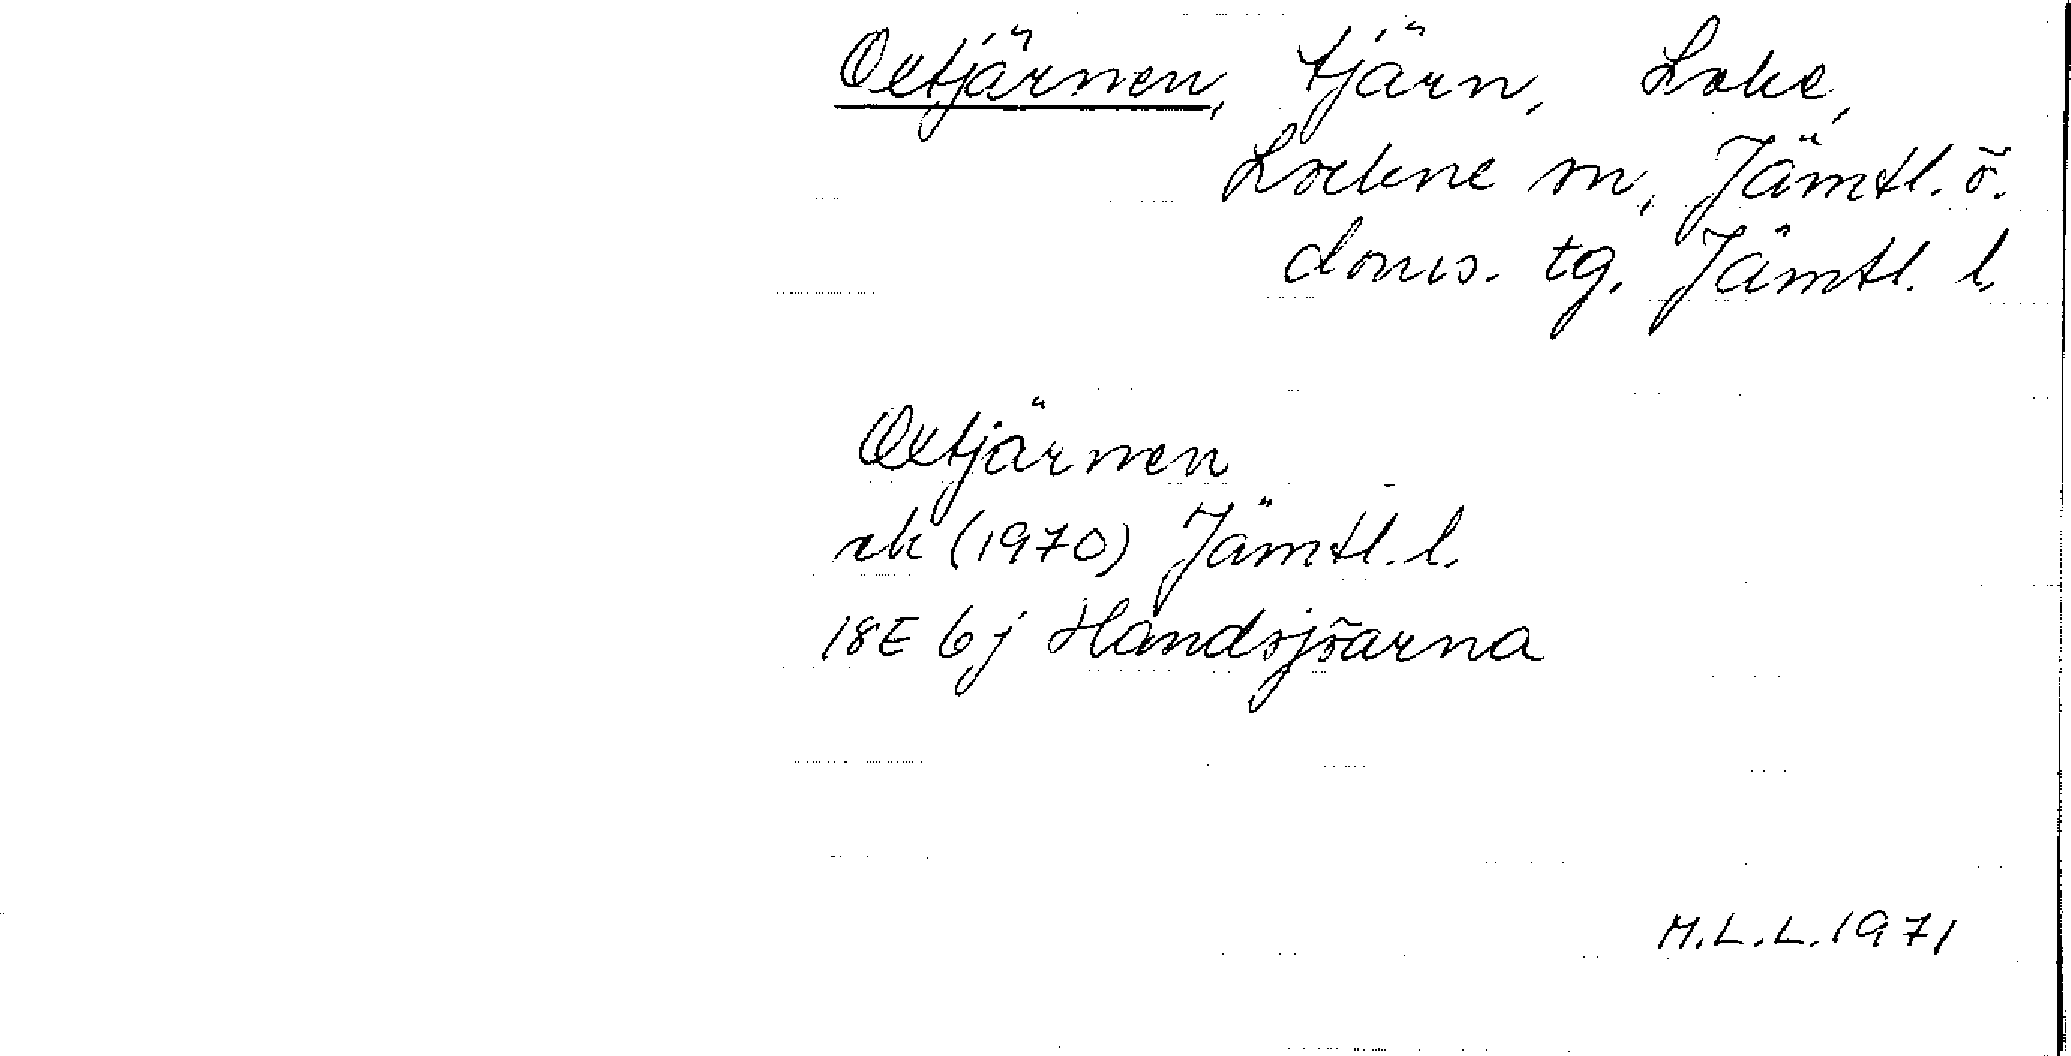 Oxtjärnen, tjärn, Loke,
Lockne sn, Jämtl. ö.
doms. tg. Jämtl. l.
Oxtjärnen
rk (1970) Jämtl. l.
18E 6j Handsjöarna
M.L.L. 1971